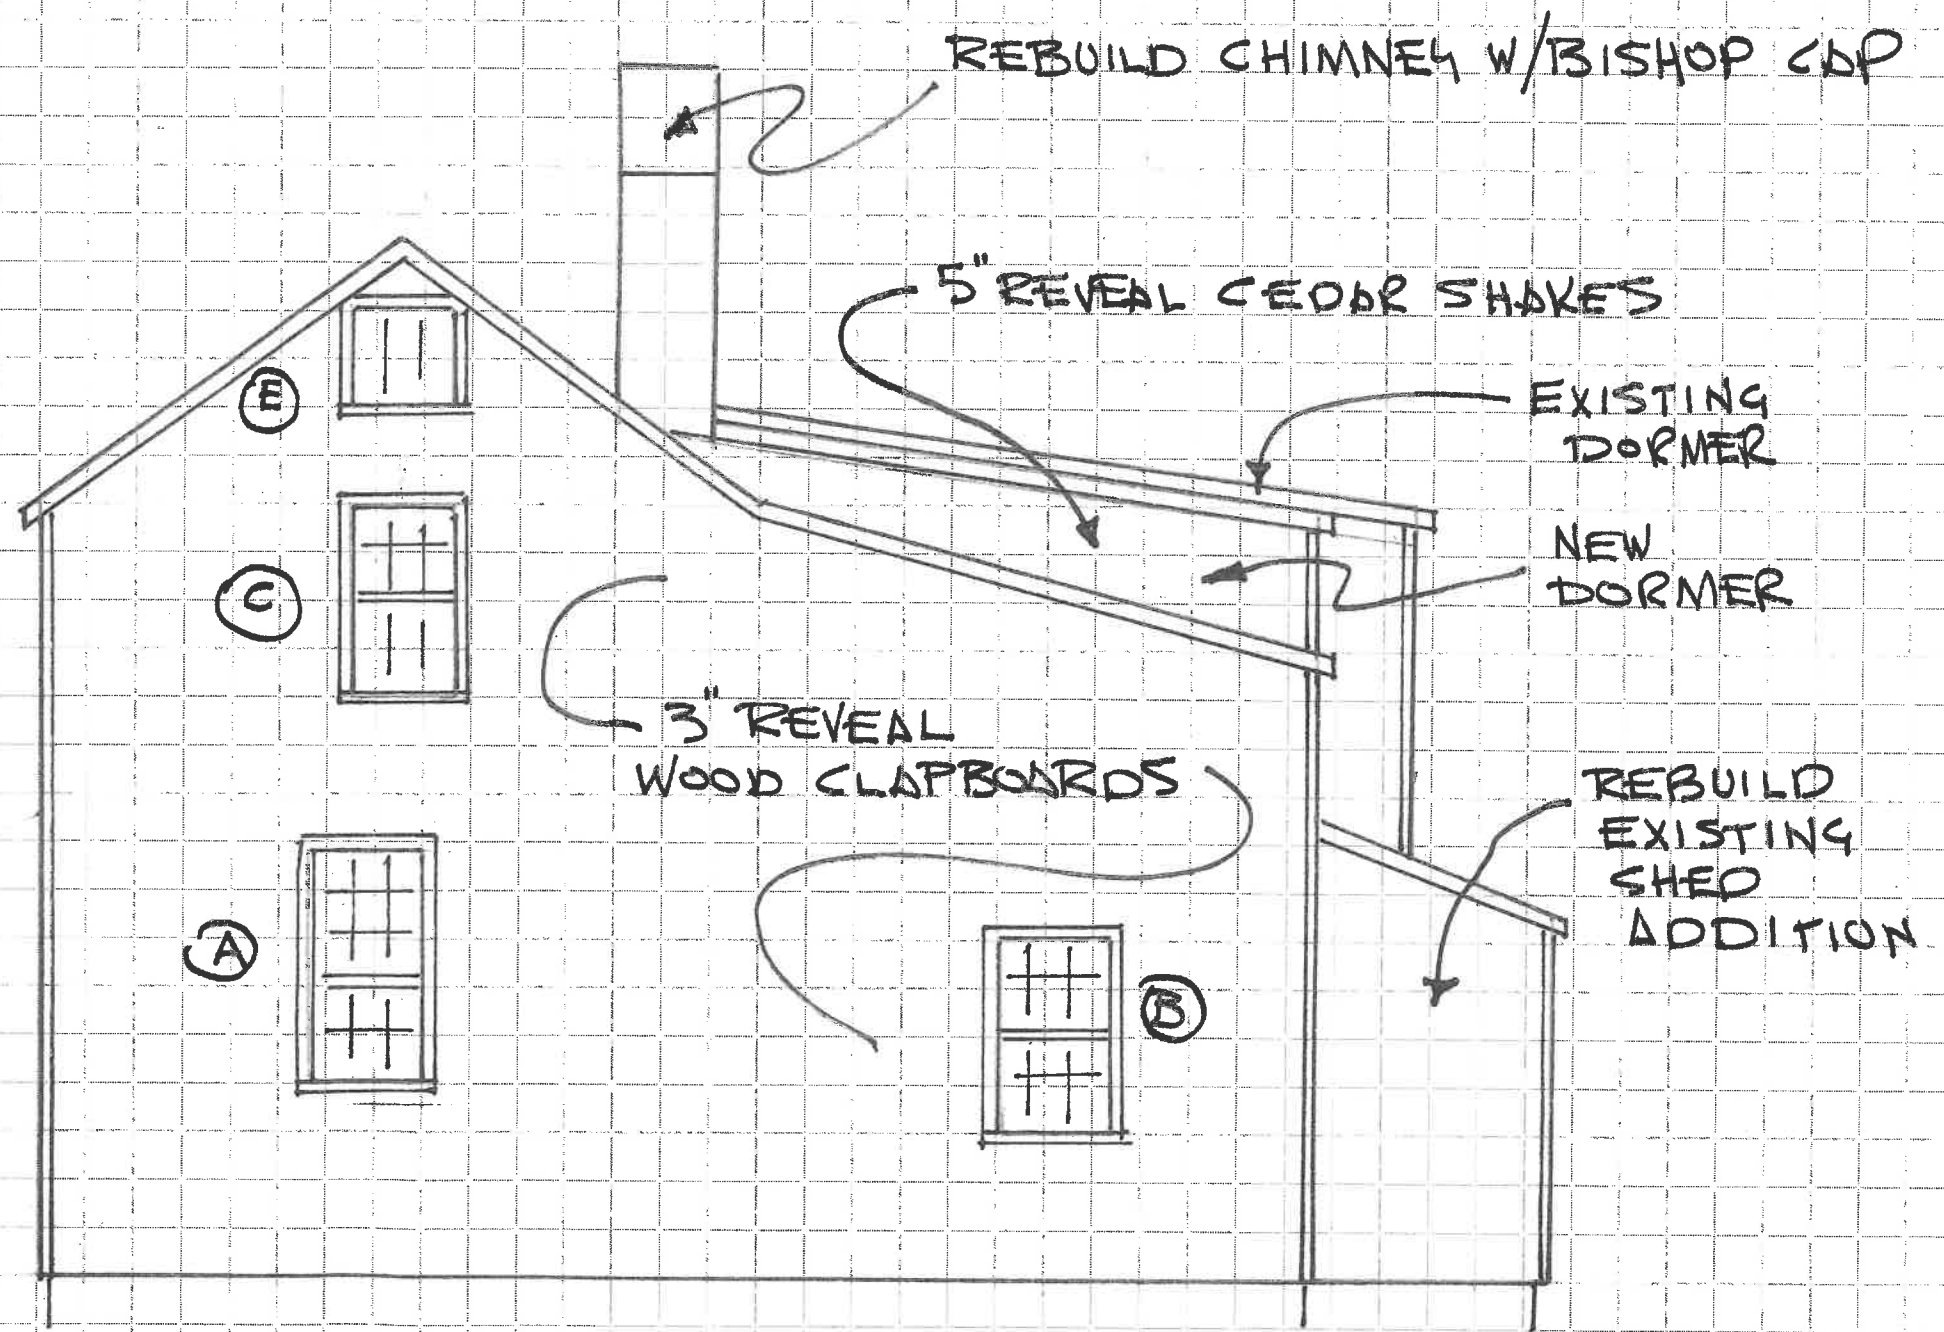 REBUILD CHIMNEY W/BISHOP CAP
5" REVEAL CEDAR SHAKES
EXISTING
DORMER
NEW
DORMER
E
C
3" REVEAL
WOOD CLAPBOARDS
REBUILD
EXISTING
SHED
ADDITION
A
B